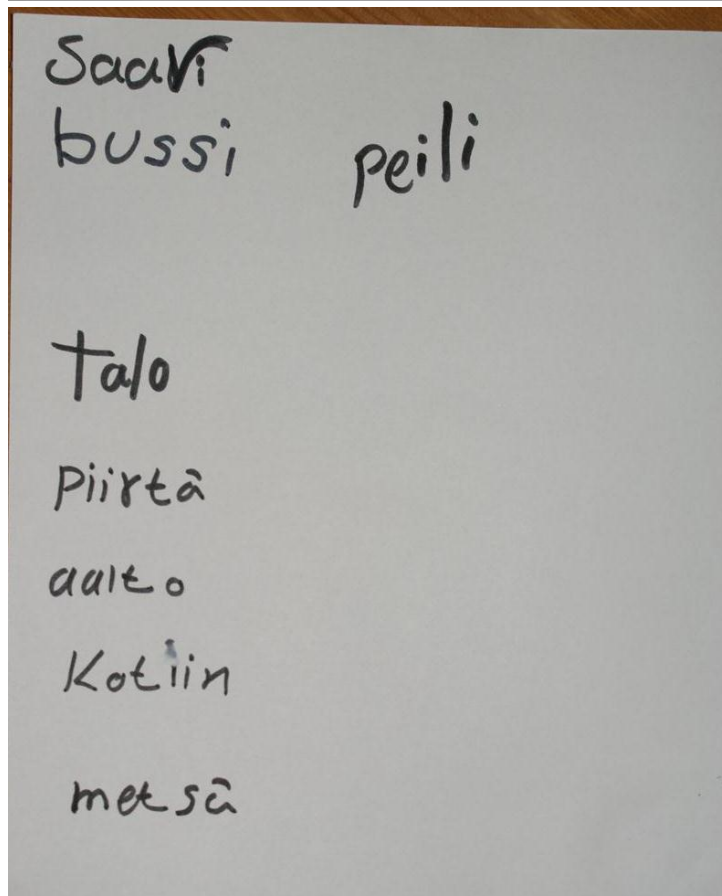 Saari
bussi peili
Talo
Piirtä
aalto
Kotiin
metsä